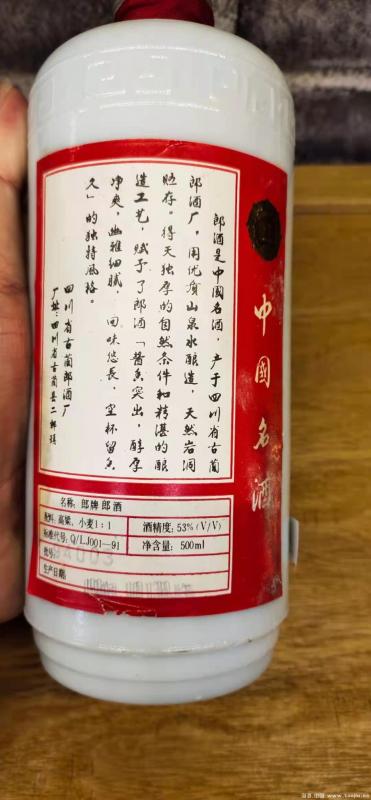 郎酒是中国名酒，产于四川省古蔺
郎酒厂。用优质山泉水酿造，天然岩洞
贮存。得天独厚的自然条件和精湛的酿
造工艺，赋予了郎酒「酱香突出，醇厚
净爽，幽雅细腻，回味悠長，空杯留香
久」的独特风格。
四川省古蔺郎酒厂
厂址：四川省古蔺县二郎镇
中國名酒
名称：郎牌郎酒
原料：高粱、小麦1：1
酒精度：53%(V/V)
标准代号：Q/LJ001—91
净含量：500ml
批号：
生产日期：